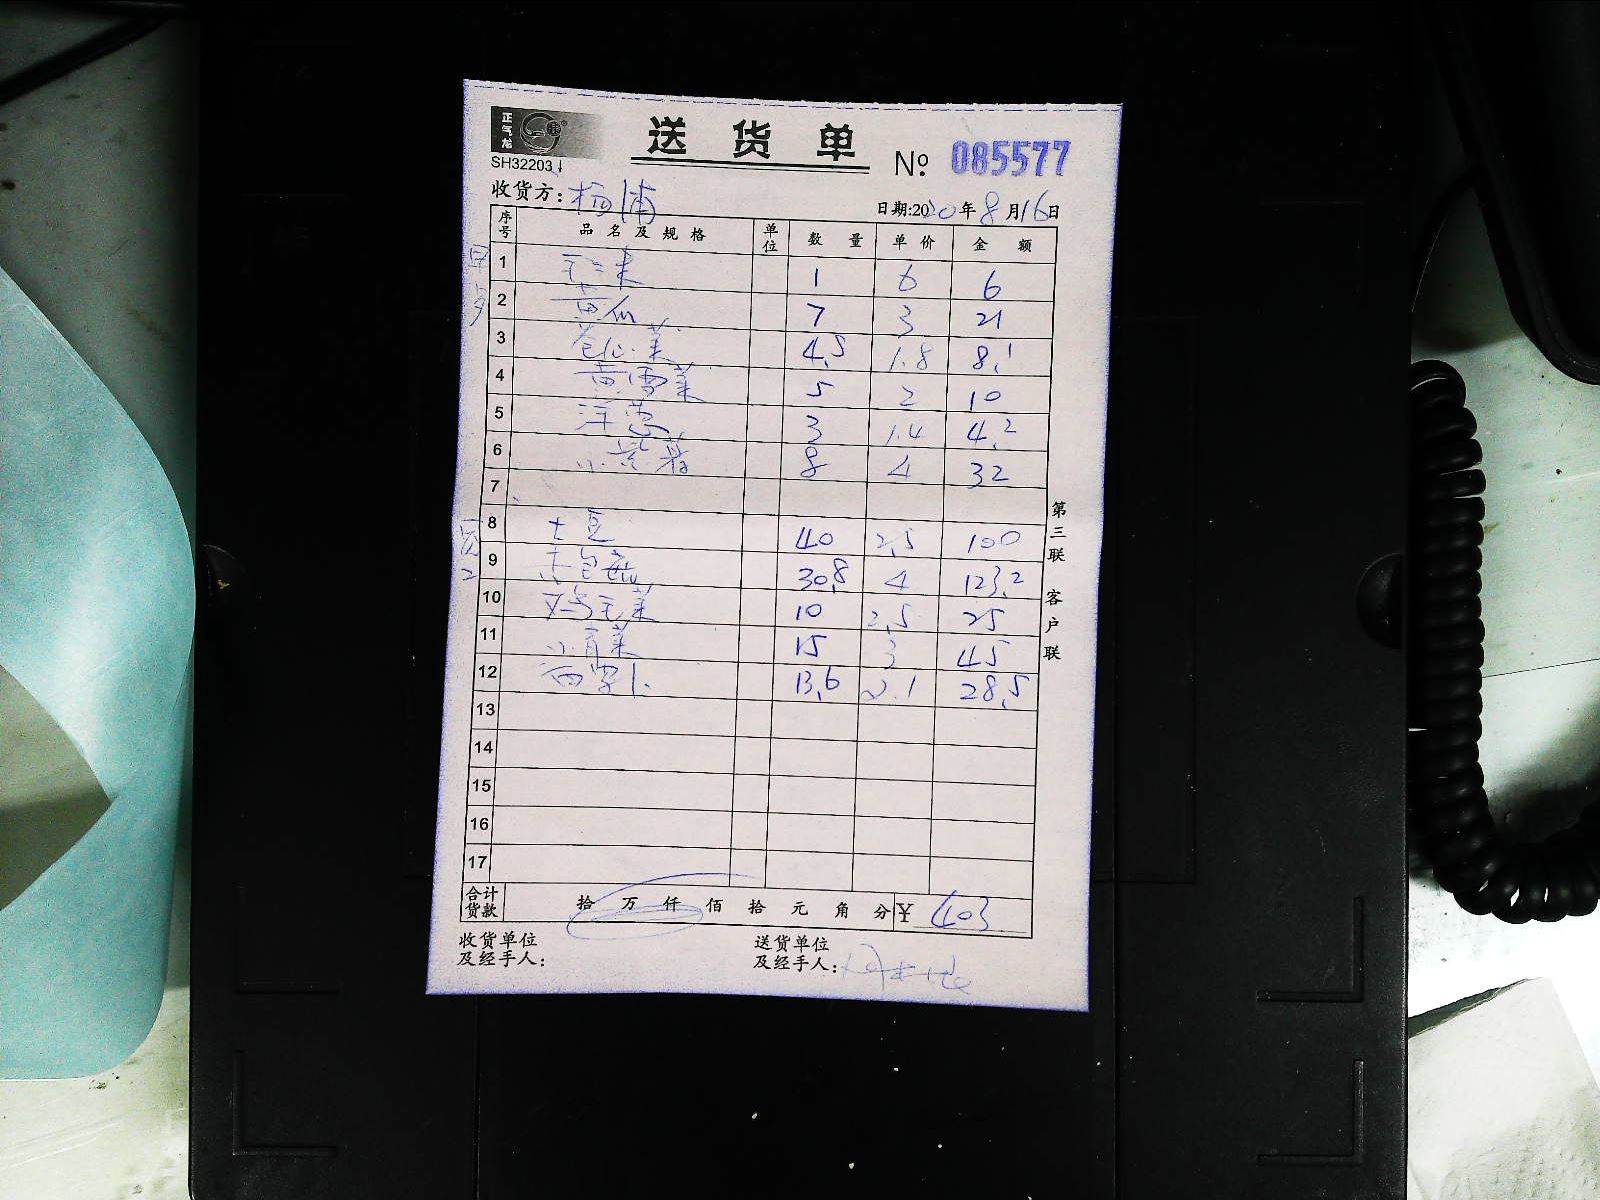 正气龙
SH32203
送货单
№ 085577
收货方: 杨浦
日期:2020年8月16日
序号 品名及规格 单位 数量 单价 金额
早点
1 1 6 6
2 黄瓜 7 3 21
3 卷心菜 4.5 1.8 8.1
4 黄雪菜 5 2 10
5 洋葱 3 1.4 4.2
6 小紫薯 8 4 32
7
8 土豆 40 2.5 100
9 30.8 4 123.2
10 鸡毛菜 10 2.5 25
11 小青菜 15 3 45
12 西萝卜 13.6 2.1 28.5
13
14
15
16
17
合计货款 拾 万 仟 佰 拾 元 角 分 ¥ 403
收货单位及经手人:
送货单位及经手人:
第三联 客户联